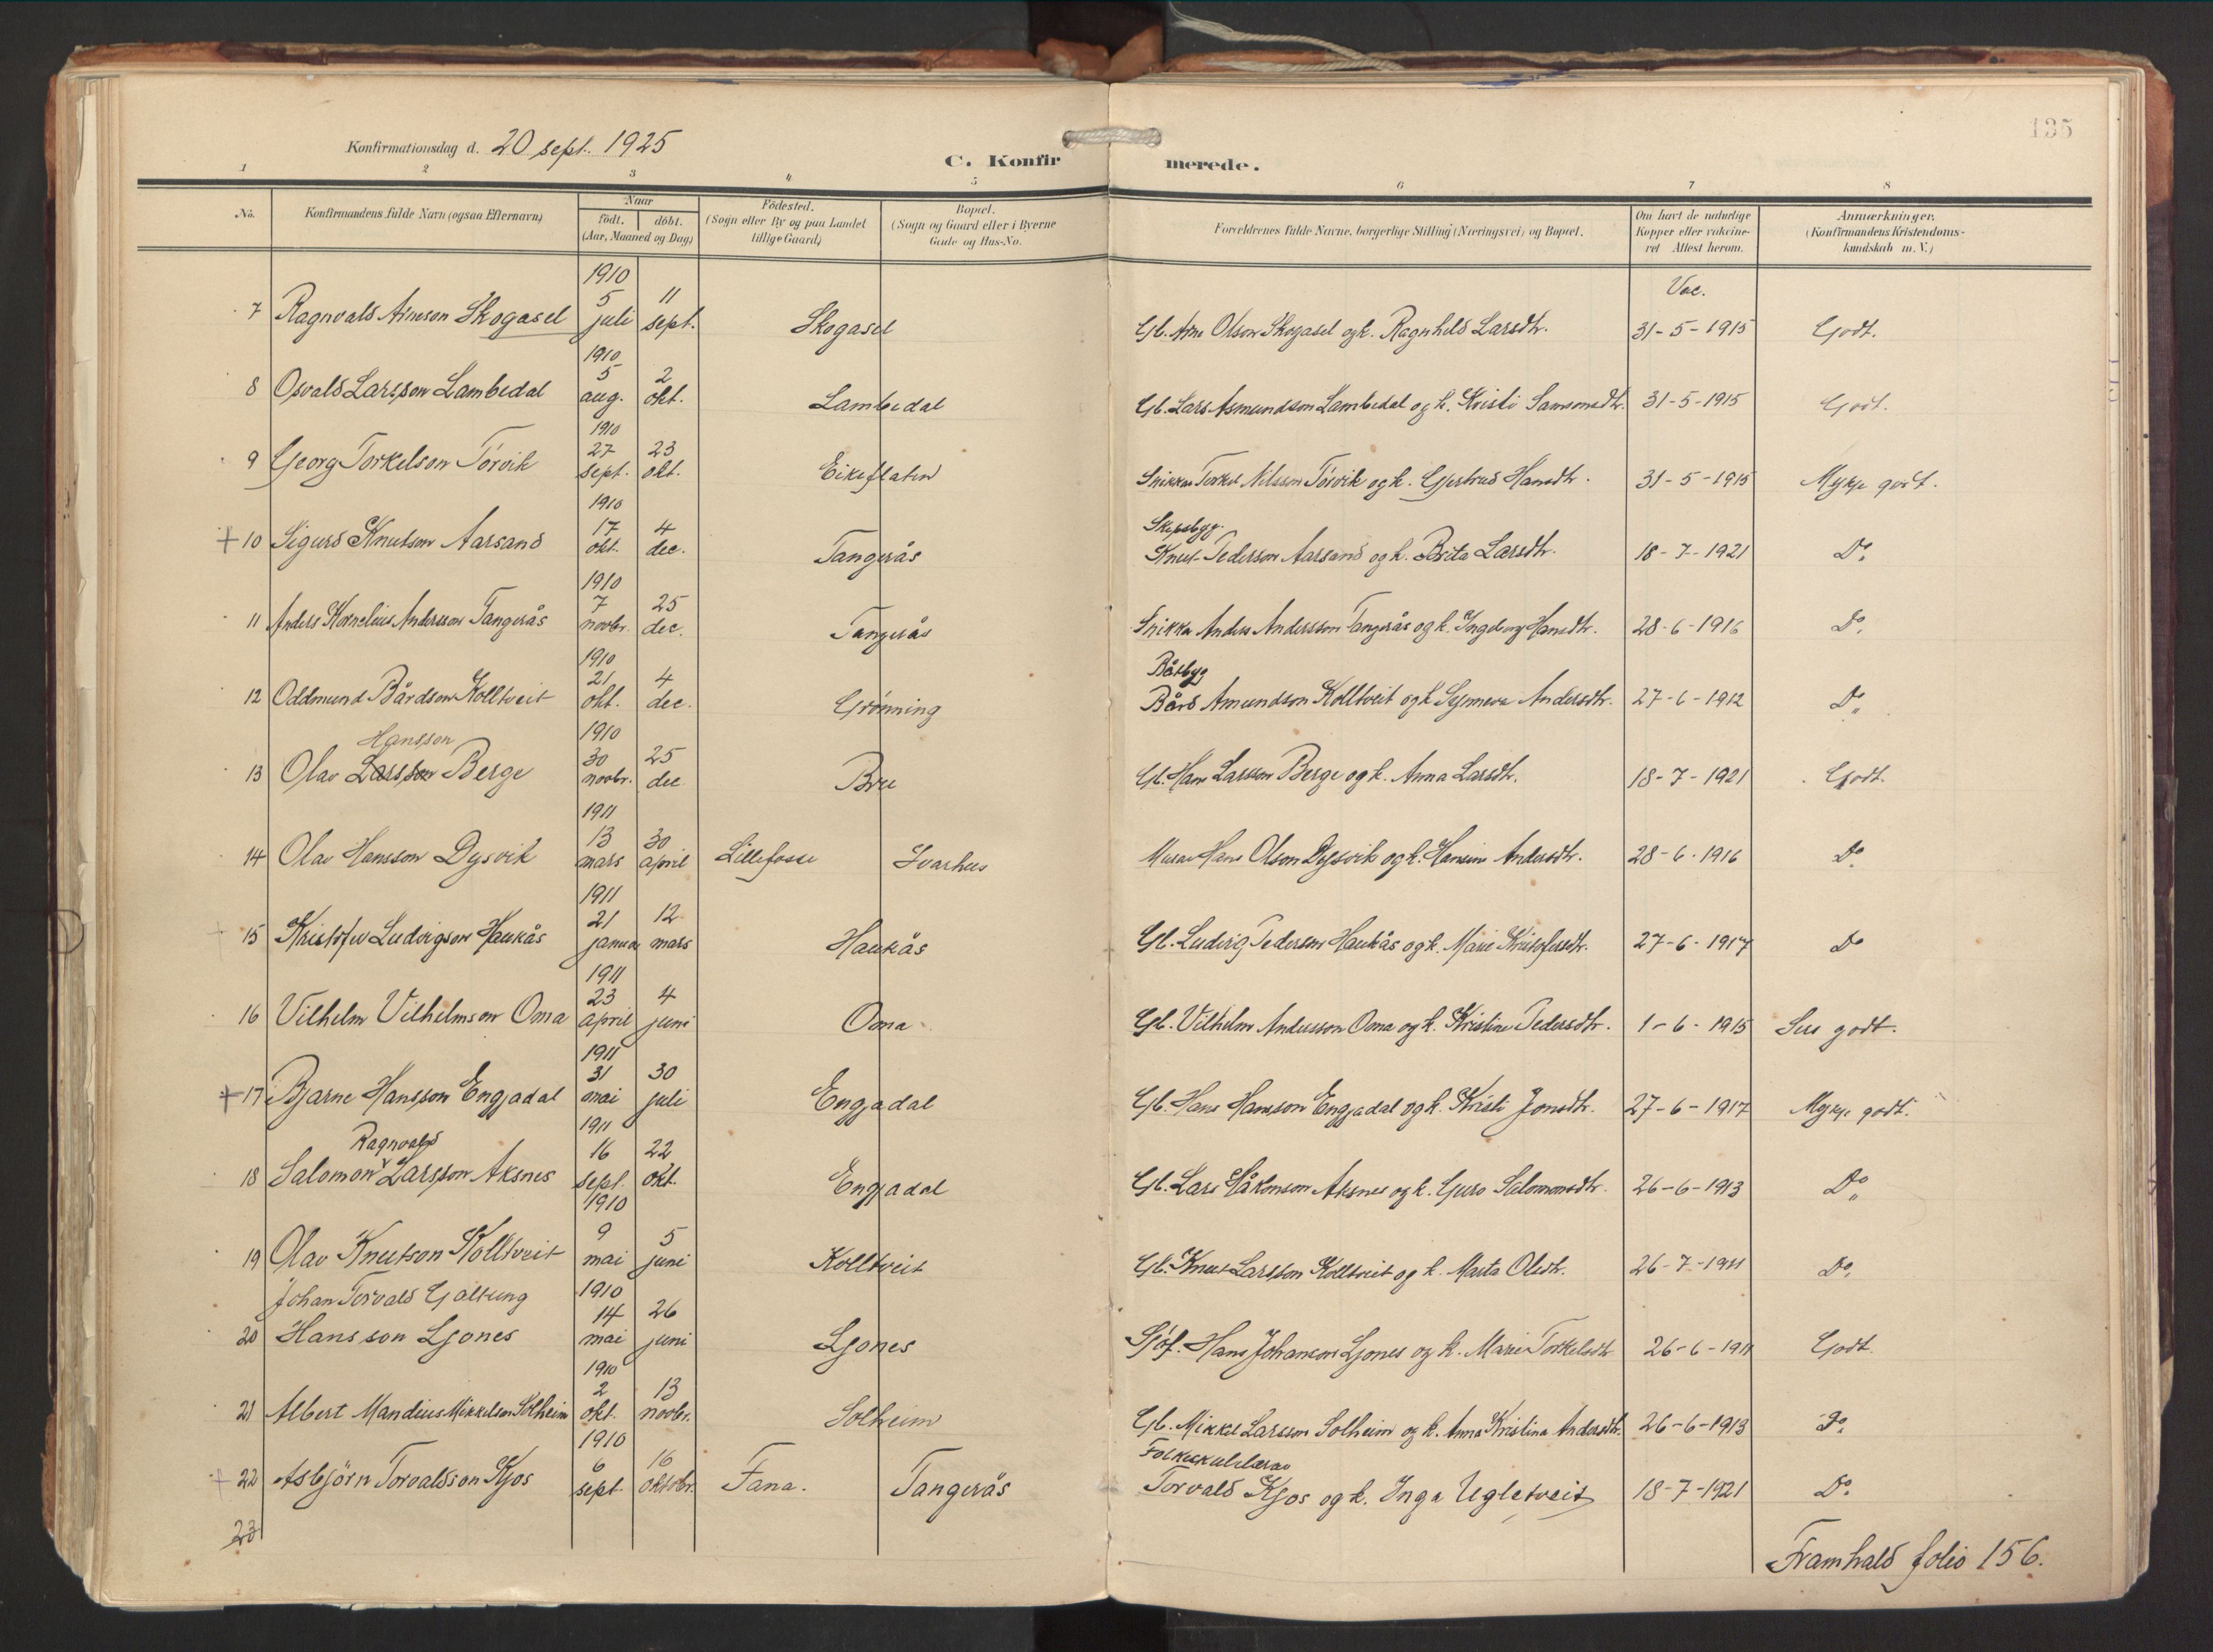 135
Konfirmationsdag d. 20 sept. 1925
C. Konfirmerede.
1 2 3 4 5 6 7 8
No. Konfirmandens fulde Navn (ogsaa Efternavn) Naar födt. döbt. (Aar, Maaned og Dag) Födested. (Sogn eller By og paa Landet tillige Gaard) Bopæl. (Sogn og Gaard eller i Byerne Gade og Hus-No. Forældrenes fulde Navne, borgerlige Stilling (Næringsvei) og Bopæl. Om havt de naturlige Kopper eller vakcineret Attest herom. Anmærkninger. (Konfirmandens Kristendomskundskab m. V.)
1910 Vac.
7 Ragnvald Arneson Skogasel 5 juli 11 sept. Skogasel Gb. Arne Olson Skogasel og k. Ragnhild Larsdtr. 31-5-1915 Godt.
1910
8 Osvald Larsson Lambedal 5 aug. 2 okt. Lambedal Gb. Lars Asmundson Lambedal og k. Kristi Samsonsdtr. 31-5-1915 Godt.
1910
9 Georg Torkelson Törvik 27 sept. 23 okt. Eikeflaten Snikkar Torkel Nilsson Törvik og k. Gjertrud Hansdtr. 31-5-1915 Mykje godt.
1910 Skipsbygg.
+ 10 Sigurd Knutson Aarsand 17 okt. 4 dec. Tangerås Knut Pederson Aarsand og k. Brita Larsdtr. 18-7-1921 Do.
1910
11 Anders Kornelius Andersson Tangerås 7 novbr. 25 dec. Tangerås Snikkar Anders Andersson Tangerås og k. Ingeborg Hansdtr. 28-6-1916 Do.
1910 Båtbygg
12 Oddmund Bårdson Kolltveit 21 okt. 4 dec. Grønning Bård Amundson Kolltveit og k. Synneva Andersdtr. 27-6-1912 Do.
Hansson 1910
13 Olav Larsson Berge 30 novbr. 25 dec Bru Gb. Hans Larsson Berge og k. Anna Larsdtr. 18-7-1921 Godt.
1911
14 Olav Hansson Dysvik 13 mars 30 april Lillefosse Ivarhus Murar Hans Olson Dysvik og k. Hansine Andersdtr. 28-6-1916 Do
1911
15 Kristofer Ludvigson Haukås 21 januar 12 mars Haukås Gb. Ludvig Pederson Haukås og k. Marie Kristofersdtr. 27-6-1917 Do
1911
16 Vilhelm Vilhelmson Oma 23 april 4 juni Oma Gb. Vilhelm Andersson Oma og k. Kristine Pedersdtr. 1-6-1915 Sers godt.
1911
+ 17 Bjarne Hansson Engjadal 31 mai 30 juli Engjadal Gb. Hans Hansson Engjadal og k. Kristi Jonsdtr. 27-6-1917 Mykje godt.
Ragnvald 1911
18 Salomon Larsson Aksnes 16 sept. 22 okt. Engjadal Gb. Lars Håkonson Aksnes og k. Guro Salomonsdtr. 26-6-1913 Do
1910
19 Olav Knutson Kolltveit 9 mai 5 juni Kolltveit Gb. Knut Larsson Kolltveit og k. Marta Olsdtr. 26-7-1911 Do.
Johan Torvald Galtung 1910
20 Hansson Ljones 14 mai 26 juni Ljones Sjöf. Hans Johanson Ljones og k. Marie Torkelsdtr 26-6-1911 Godt.
1910
21 Albert Mandius Mikkelson Solheim 2 okt. 13 novbr. Solheim Gb. Mikkel Larsson Solheim og k. Anna Kristina Andersdtr. 26-6-1913 Do.
1910 Folkeskulelærar
+ 22 Asbjörn Torvaldson Kjos 6 sept. 16 oktobr. Fana. Tangerås Torvald Kjos og k. Inga Ugletveit 18-7-1921 Do.
23
Framhald folio 156.